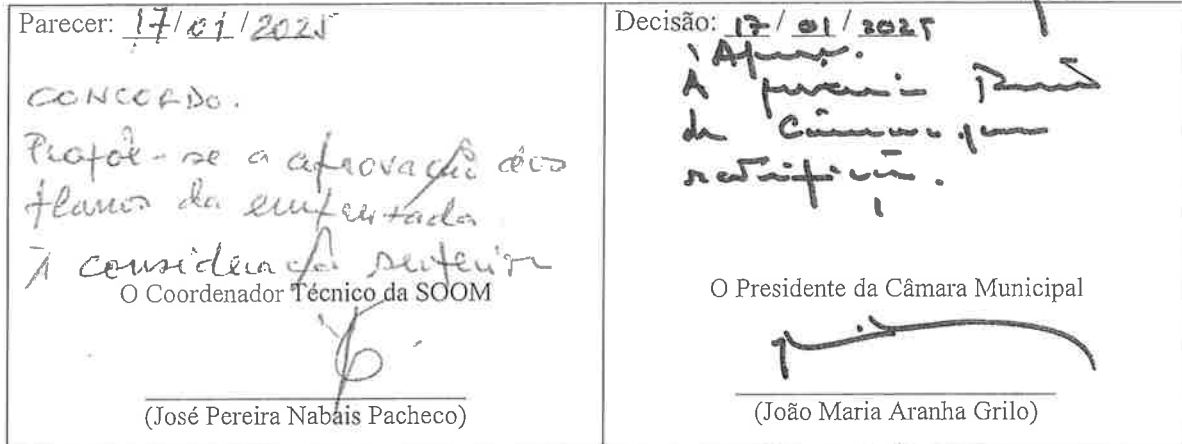 Parecer: 17/01/2025
CONCORDO.
Propõe-se a aprovação dos
planos da empreitada
À consideração superior
O Coordenador Técnico da SOOM
(José Pereira Nabais Pacheco)
Decisão: 17/01/2025
Aprovo.
À próxima Reunião
de Câmara para
ratificação.
O Presidente da Câmara Municipal
(João Maria Aranha Grilo)